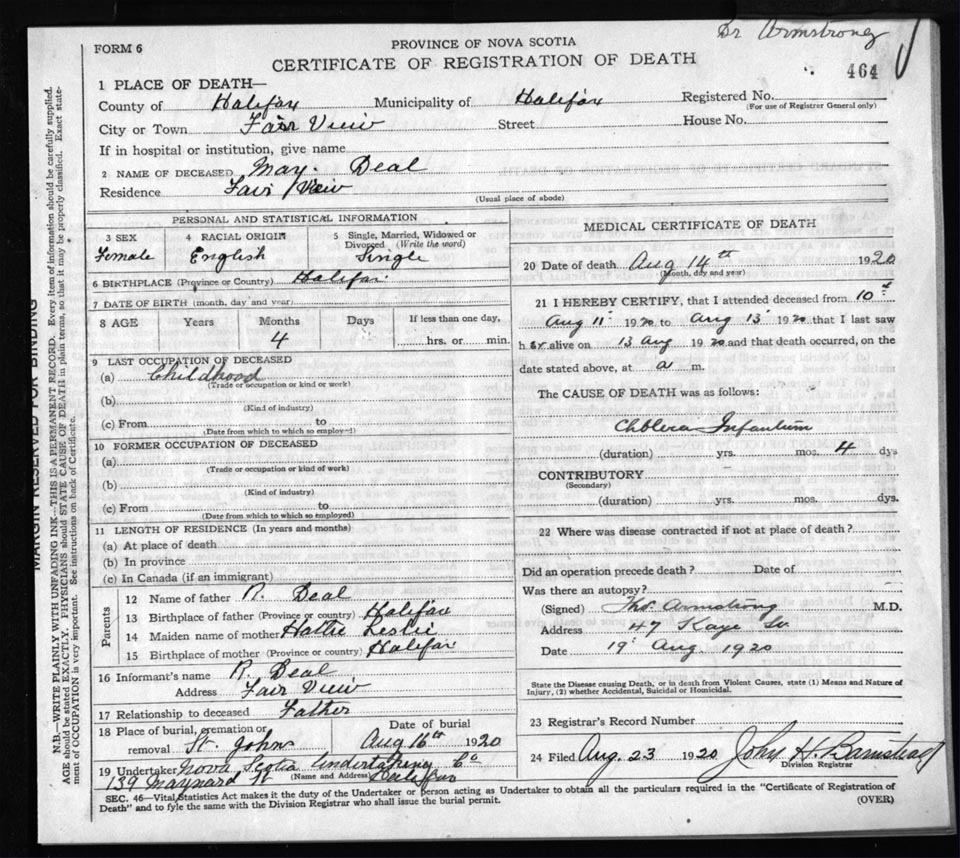 Dr Armstrong
FORM 6
PROVINCE OF NOVA SCOTIA
CERTIFICATE OF REGISTRATION OF DEATH
464
1 PLACE OF DEATH—
County of Halifax Municipality of Halifax Registered No.
(For use of Registrar General only)
City or Town Fair View Street House No.
If in hospital or institution, give name
2 NAME OF DECEASED May. Deal
Residence Fair View
(Usual place of abode)
PERSONAL AND STATISTICAL INFORMATION
3 SEX 4 RACIAL ORIGIN 5 Single, Married, Widowed or Divorced (Write the word)
Female English Single
6 BIRTHPLACE (Province or Country) Halifax
7 DATE OF BIRTH (month, day and year)
8 AGE Years Months Days If less than one day,
4 hrs. or min.
9 LAST OCCUPATION OF DECEASED
(a) Childhood
(Trade or occupation or kind or work)
(b)
(Kind of industry)
(c) From to
(Date from which to which so employed)
10 FORMER OCCUPATION OF DECEASED
(a)
(Trade or occupation or kind or work)
(b)
(Kind of industry)
(c) From to
(Date from which to which so employed)
11 LENGTH OF RESIDENCE (In years and months)
(a) At place of death
(b) In province
(c) In Canada (if an immigrant)
Parents
12 Name of father R. Deal
13 Birthplace of father (Province or country) Halifax
14 Maiden name of mother Hattie Leslie
15 Birthplace of mother (Province or country) Halifax
16 Informant's name R. Deal
Address Fair View
17 Relationship to deceased Father
18 Place of burial, cremation or removal St. Johns
Date of burial Aug 16th 1920
19 Undertaker Nova Scotia Undertaking Co
139 Maynard (Name and Address) Halifax
MEDICAL CERTIFICATE OF DEATH
20 Date of death Aug 14th 1920
(Month, day and year)
21 I HEREBY CERTIFY, that I attended deceased from 10
Aug 11 1920 to Aug 13 1920 that I last saw
her alive on 13 Aug 1920 and that death occurred, on the
date stated above, at a m.
The CAUSE OF DEATH was as follows:
Cholera Infantum
(duration) yrs. mos. 4 dys
CONTRIBUTORY
(Secondary)
(duration) yrs. mos. dys.
22 Where was disease contracted if not at place of death?
Did an operation precede death? Date of
Was there an autopsy?
(Signed) Thos. Armstrong M.D.
Address 47 Kaye St.
Date 19 Aug. 1920
State the Disease causing Death, or in death from Violent Causes, state (1) Means and Nature of
Injury, (2) whether Accidental, Suicidal or Homicidal.
23 Registrar's Record Number
24 Filed Aug. 23 1920 John H. Barnstead
Division Registrar
SEC. 46—Vital Statistics Act makes it the duty of the Undertaker or person acting as Undertaker to obtain all the particulars required in the "Certificate of Registration of
Death" and to fyle the same with the Division Registrar who shall issue the burial permit. (OVER)
MARGIN RESERVED FOR BINDING
N.B.—WRITE PLAINLY WITH UNFADING INK—THIS IS A PERMANENT RECORD. Every item of information should be carefully supplied.
AGE should be stated EXACTLY. PHYSICIANS should STATE CAUSE OF DEATH in plain terms, so that it may be properly classified. Exact state-
ment of OCCUPATION is very important. See instructions on back of Certificate.